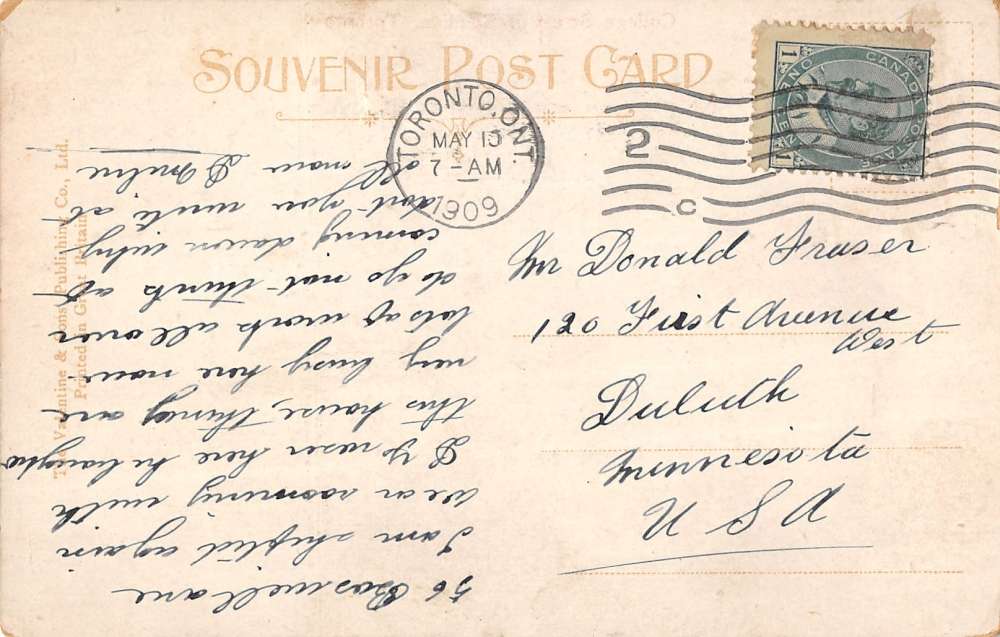 SOUVENIR POST CARD
TORONTO, ONT.
MAY 13
7-AM
1909
2
C
CANADA POSTAGE
ONE CENT
1
1
Mr Donald Fraser
120 First Avenue
West
Duluth
Minnesota
USA
The Valentine & Sons' Publishing Co., Ltd.
Printed in Great Britain.
56 Boswell ave
I am shifted again
We ar rooming with
D Fraser here he bought
this house, things are
very busy here now
lots of work all over
do yo not think of
coming down why
dont you write at
all now D